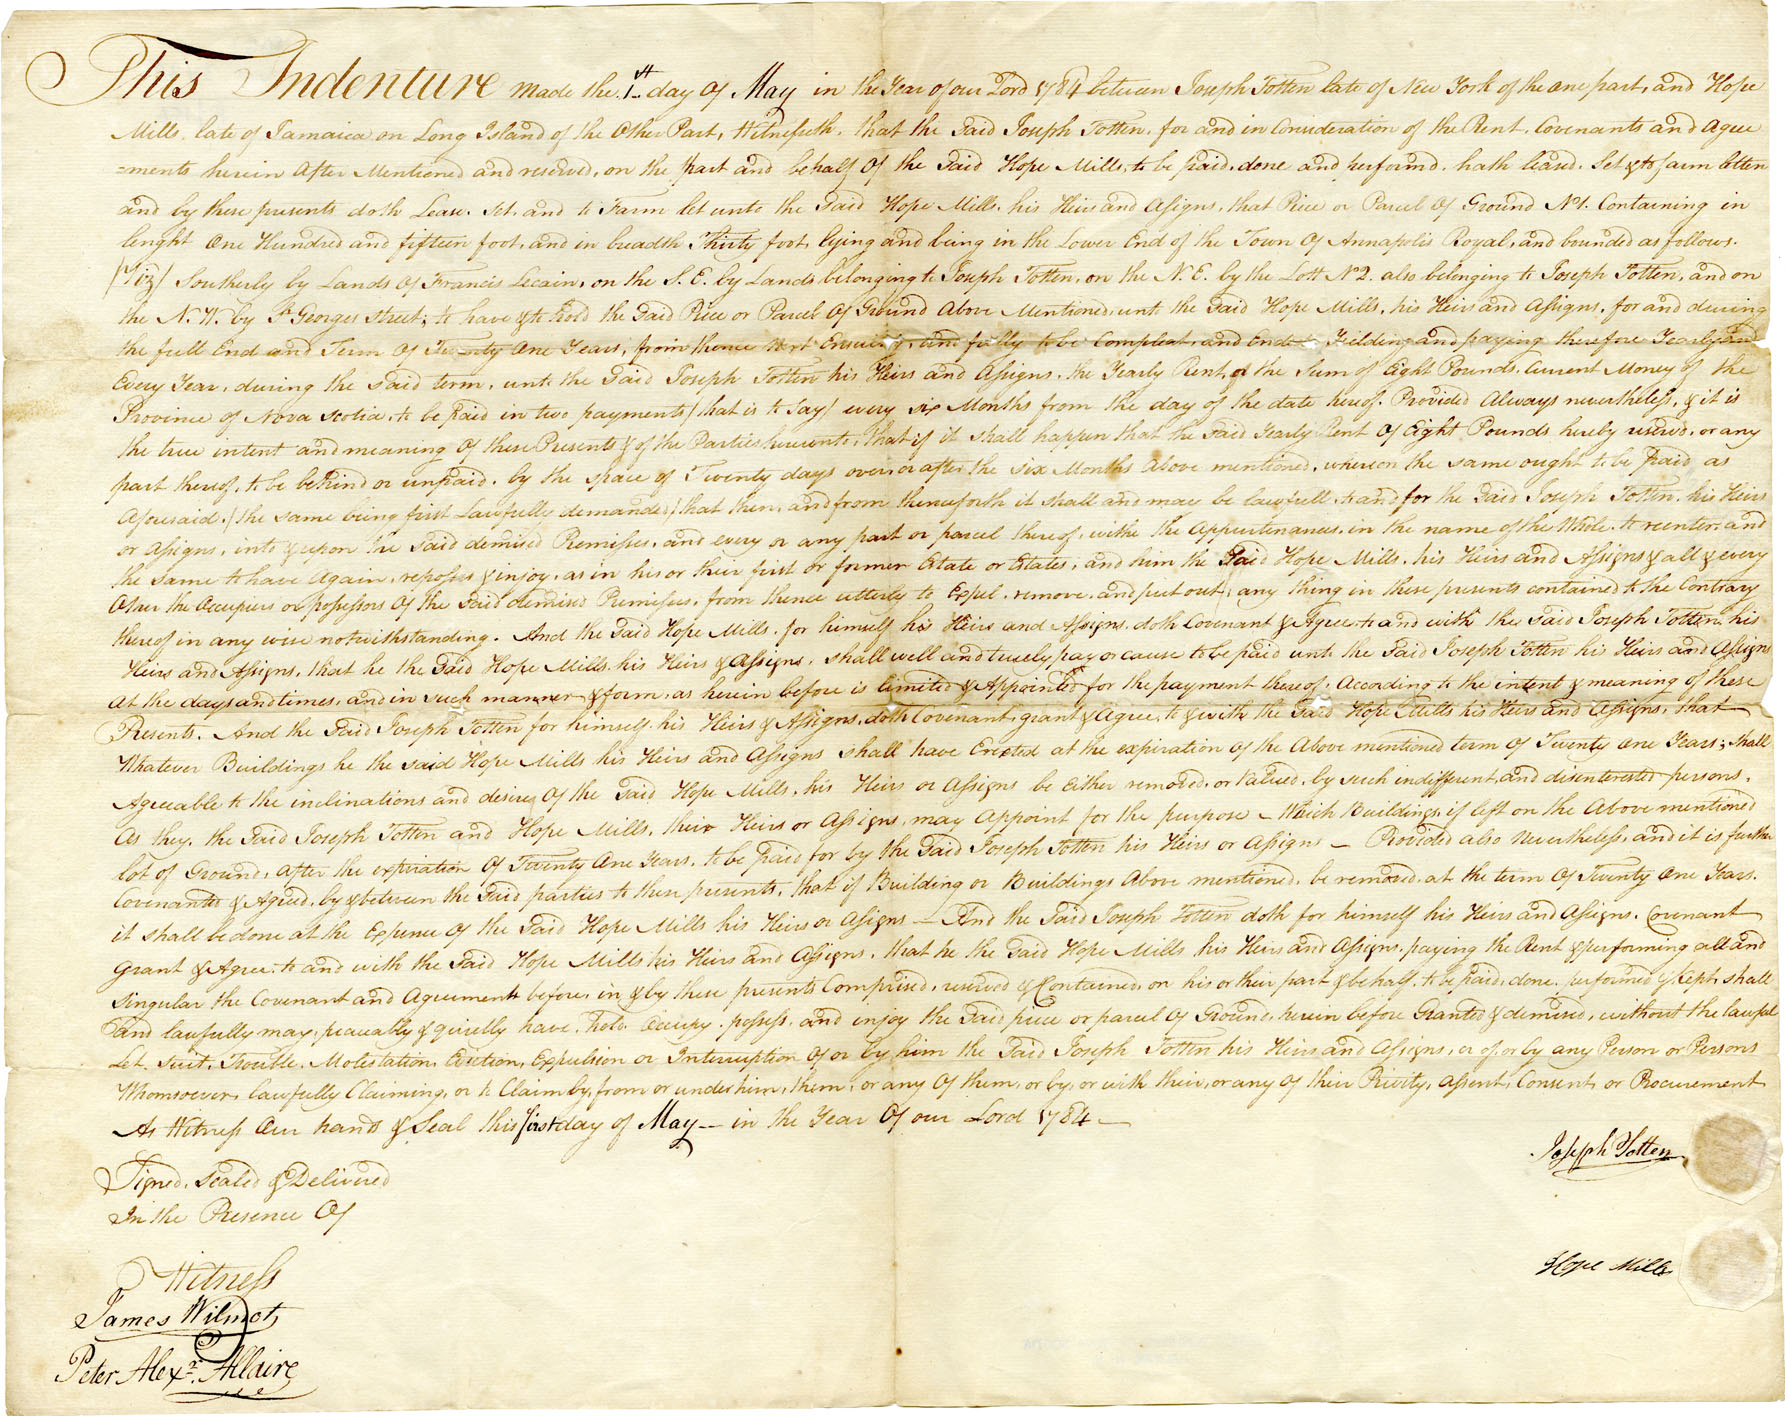 This Indenture made the 1st day of May in the Year of our Lord 1784 between Joseph Totten late of New York of the one part, and Hope
Mills, late of Jamaica on Long Island of the Other Part, Witnesseth, that the Said Joseph Totten, for and in Consideration of the Rent, Covenants and Agree
=ments herein After Mentioned and reserved, on the part and behalf Of the Said Hope Mills, to be paid, done and perform'd, hath leas'd, Set & to farm letten
and by these presents doth Lease, Set, and to Farm let unto the Said Hope Mills, his Heirs and Assigns, that Piece or Parcel Of Ground No 1. Containing in
lenght One Hundred and fifteen foot, and in breadth Thirty foot, lying and being in the Lower End of the Town Of Annapolis Royal, and bounded as follows.
(Viz) Southerly by Lands Of Francis Lecain, on the S. E. by Lands belonging to Joseph Totten, on the N. E. by the Lott No 2. also belonging to Joseph Totten, and on
the N. W. by St Georges street; to have & to hold the Said Piece or Parcel Of Ground Above Mentioned, unto the Said Hope Mills, his Heirs and Assigns, for and during
the full End and Term Of Twenty One Years, from thence Next Ensuing, and fully to be Compleat, and Ended Yielding and paying therefore Yearly and
Every Year, during the said term, unto the Said Joseph Totten his Heirs and Assigns, the Yearly Rent, or the Sum of Eight Pounds, Current Money of the
Province of Nova Scotia, to be paid in two payments (that is to Say) every six Months from the day of the date hereof. Provided Always nevertheless, & it is
the true intent and meaning Of these Presents & of the Parties hereunto, that if it shall happen that the Said Yearly Rent Of Eight Pounds hereby reserved, or any
part thereof, to be behind or unpaid, by the space of Twenty days over or after the six Months Above mentioned, whereon the same ought to be paid as
Aforesaid, (the same being first Lawfully demanded) that then, and from thenceforth it shall and may be lawfull to and for the Said Joseph Totten, his Heirs
or Assigns, into & upon the said demised Premisses, and every or any part or parcel thereof, withe the Appurtenances, in the name of the Whole, to reenter, and
the same to have Again, reposses & injoy, as in his or their first or former Estate or Estates, and him the Said Hope Mills, his Heirs and Assigns & all & every
Other the Occupiers or possessors Of the Said demised Premisses, from thence utterly to Expel, remove, and put out, any thing in these presents contained to the Contrary
thereof in any wise notwithstanding. And the Said Hope Mills, for himself his Heirs and Assigns, doth Covenant & Agree to and with the Said Joseph Totten, his
Heirs and Assigns, that he the Said Hope Mills, his Heirs & Assigns, shall well and truely pay or cause to be paid unto the Said Joseph Totten his Heirs and Assigns
At the days and times, and in such manner & form, as herein before is limited & Appointed for the payment thereof, According to the intent & meaning of these
Presents. And the Said Joseph Totten for himself his Heirs & Assigns, doth Covenant, grant & Agree, to & with the Said Hope Mills his Heirs and Assigns, that
Whatever Buildings he the said Hope Mills his Heirs and Assigns shall have Erected at the expiration Of the Above mentioned term Of Twenty one Years; shall
Agreeable to the inclinations and desires Of the Said Hope Mills, his Heirs or Assigns be Either removed, or Valued, by such indifferent, and disenterested persons,
As they, the Said Joseph Totten and Hope Mills, their Heirs or Assigns, may Appoint for the purpose — Which Buildings, if left on the Above mentioned
lot of Ground, After the expiration Of Twenty One Years, to be paid for by the Said Joseph Totten his Heirs or Assigns — Provided also Nevertheless, and it is further
Covenanted & Agreed, by & between the Said parties to these presents, that if Building or Buildings Above mentioned, be removed, at the term Of Twenty One Years.
it shall be done at the Expence Of the Said Hope Mills his Heirs or Assigns — And the Said Joseph Totten doth for himself his Heirs and Assigns, Covenant
Grant & Agree, to and with the Said Hope Mills his Heirs and Assigns, that he the Said Hope Mills his Heirs and Assigns, paying the Rent & performing all and
Singular the Covenant and Agreements before, in & by these presents Comprised, reserved & Contained, on his or their part & behalf, to be paid, done, performed & kept, shall
and lawfully may, peaceably & quietly have, hold, Occupy, possess, and enjoy the Said piece or parcel Of Ground, herein before Granted & demised, without the lawful
Let, Suit, Trouble, Molestation, Eviction, Expulsion or Interruption Of or by him the Said Joseph Totten his Heirs and Assigns, or of, or by any Person or Persons
Whomsoever, lawfully Claiming, or to Claim by, from or under him, them, or any Of them, or by, or with their, or any Of their Privity, Assent, Consent, or Procurement
As Witness Our hands & Seal this first day of May — in the Year Of our Lord 1784 —
Joseph Totten
Signed, Sealed & Delivered
In the Presence Of
Hope Mills
Witness
James Wilmot,
Peter Alexr. Allaire